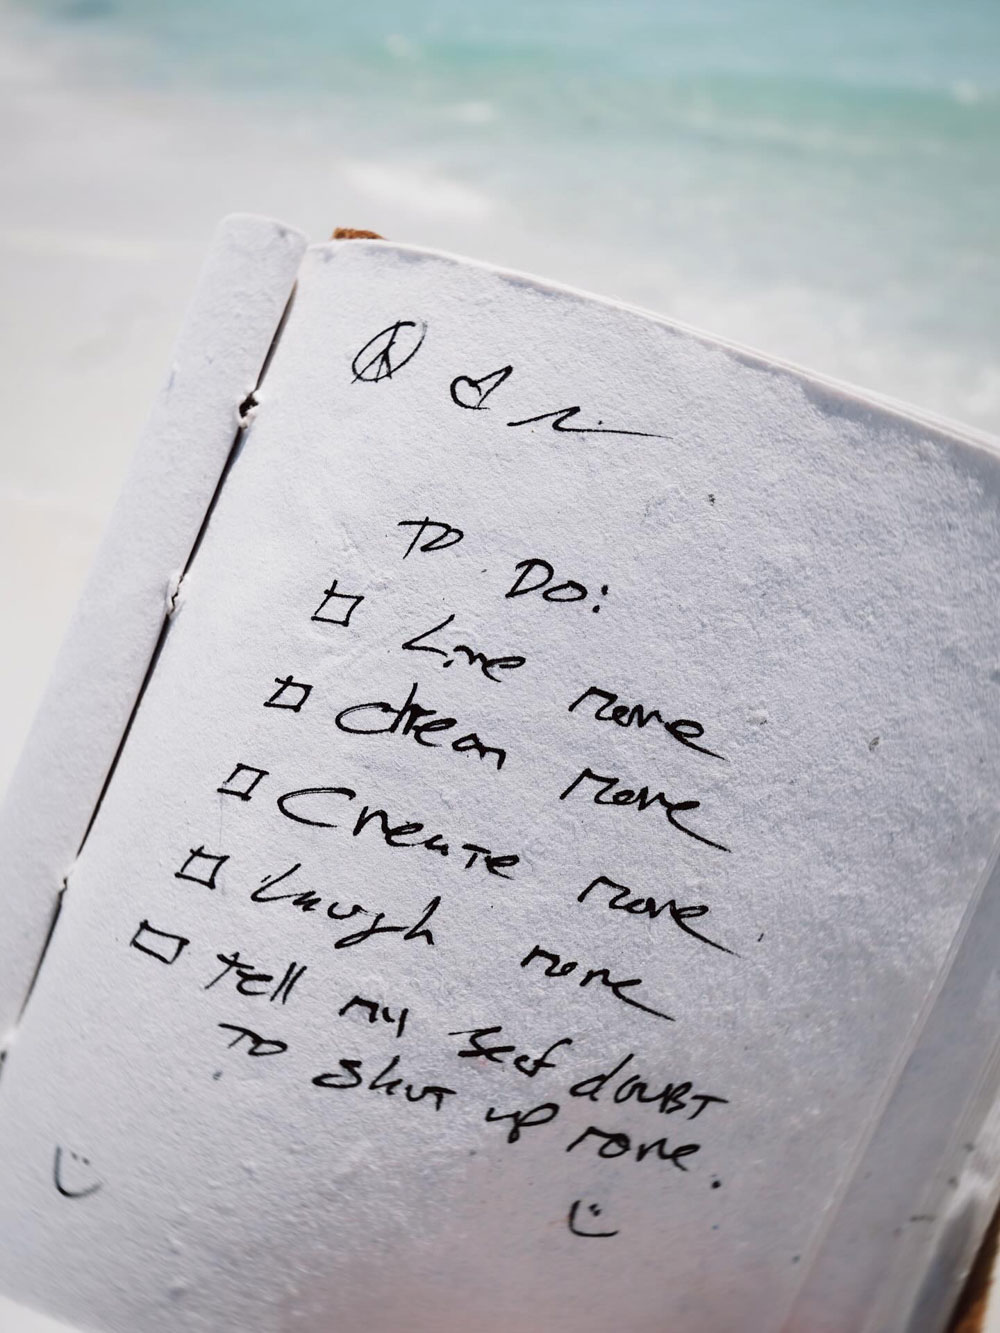 To Do:
Live more
dream more
Create more
laugh more
tell my self doubt
to shut up more.